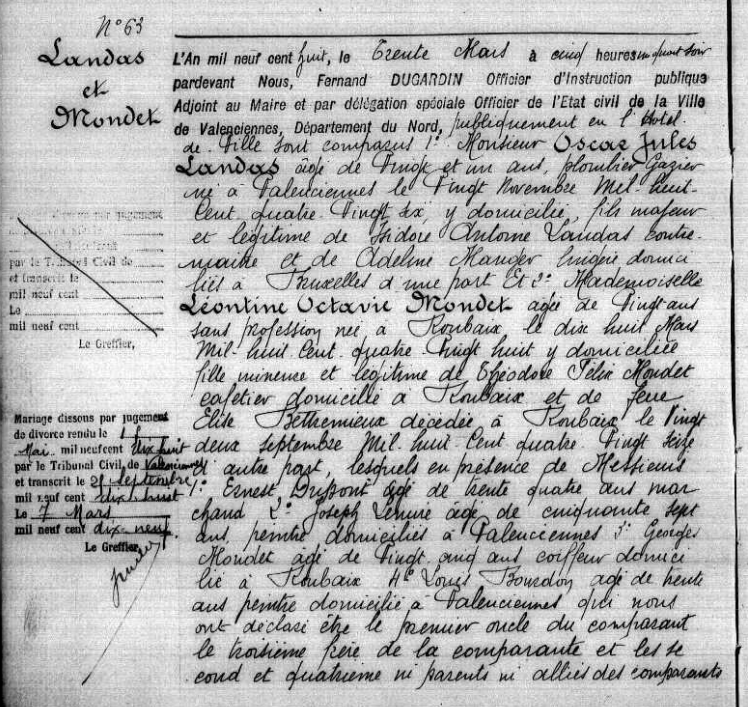 N° 63
Landas
et
Mondet
L'An mil neuf cent huit, le Trente Mars à cinq heures un quart soir
pardevant Nous, Fernand DUGARDIN Officier d'Instruction publique
Adjoint au Maire et par délégation spéciale Officier de l'Etat civil de la Ville
de Valenciennes, Département du Nord, publiquement en l'Hotel
de Ville sont comparus 1° Monsieur Oscar Jules
Landas âgé de Vingt et un ans, plombier Gazier
né à Valenciennes le Vingt Novembre Mil-huit-
Cent-quatre-Vingt six, y domicilié, fils majeur
et légitime de Isidore Antoine Landas contre-
maitre et de Adeline Manger lingère domici
liés à Bruxelles d'une part Et 2° Mademoiselle
Léontine Octavie Mondet agée de Vingt ans
sans profession née à Roubaix le dix huit Mars
Mil-huit-Cent-quatre-Vingt huit y domiciliée
fille mineure et légitime de Théodore Félix Mondet
cafetier domicilié à Roubaix et de feue
Elise Béthemieux décédée à Roubaix le Vingt
deux septembre Mil-huit-Cent quatre Vingt Seize
d'autre part, lesquels en présence de Messieurs
1° Ernest Dupont âgé de trente quatre ans mar
chand 2° Joseph âgé de cinquante sept
ans peintre domiciliés à Valenciennes 3° Georges
Mondet âgé de Vingt cinq ans coiffeur domici
lié à Roubaix 4° Louis Bourdon agé de trente
ans peintre domicilié à Valenciennes qui nous
ont déclaré être le premier oncle du comparant
le troisième frère de la comparante et les se
cond et quatrième ni parents ni alliés des comparants
par jugement
par le T. Civil de
et transcrit le
mil neuf cent
Le
mil neuf cent
Le Greffier,
Mariage dissous par jugement
de divorce rendu le
Mai mil neuf cent dix huit
par le Tribunal Civil de Valenciennes
et transcrit le 21 septembre
mil neuf cent dix-huit
Le 7 Mars
mil neuf cent dix-neuf.
Le Greffier,